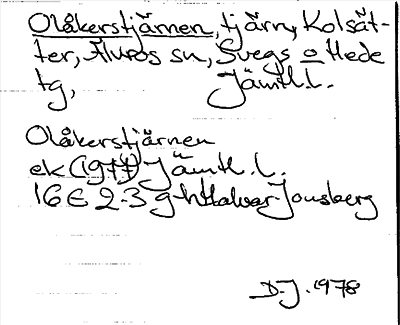 Olåkerstjärnen, tjärn, Kolsät-
ter, Älvros sn, Svegs o Hede
tg, Jämtl.l.
Olåkerstjärnen
ek (1977) Jämtl.l.
16E 2-3 g-h Halvar Jonsberg
D-J. 1978